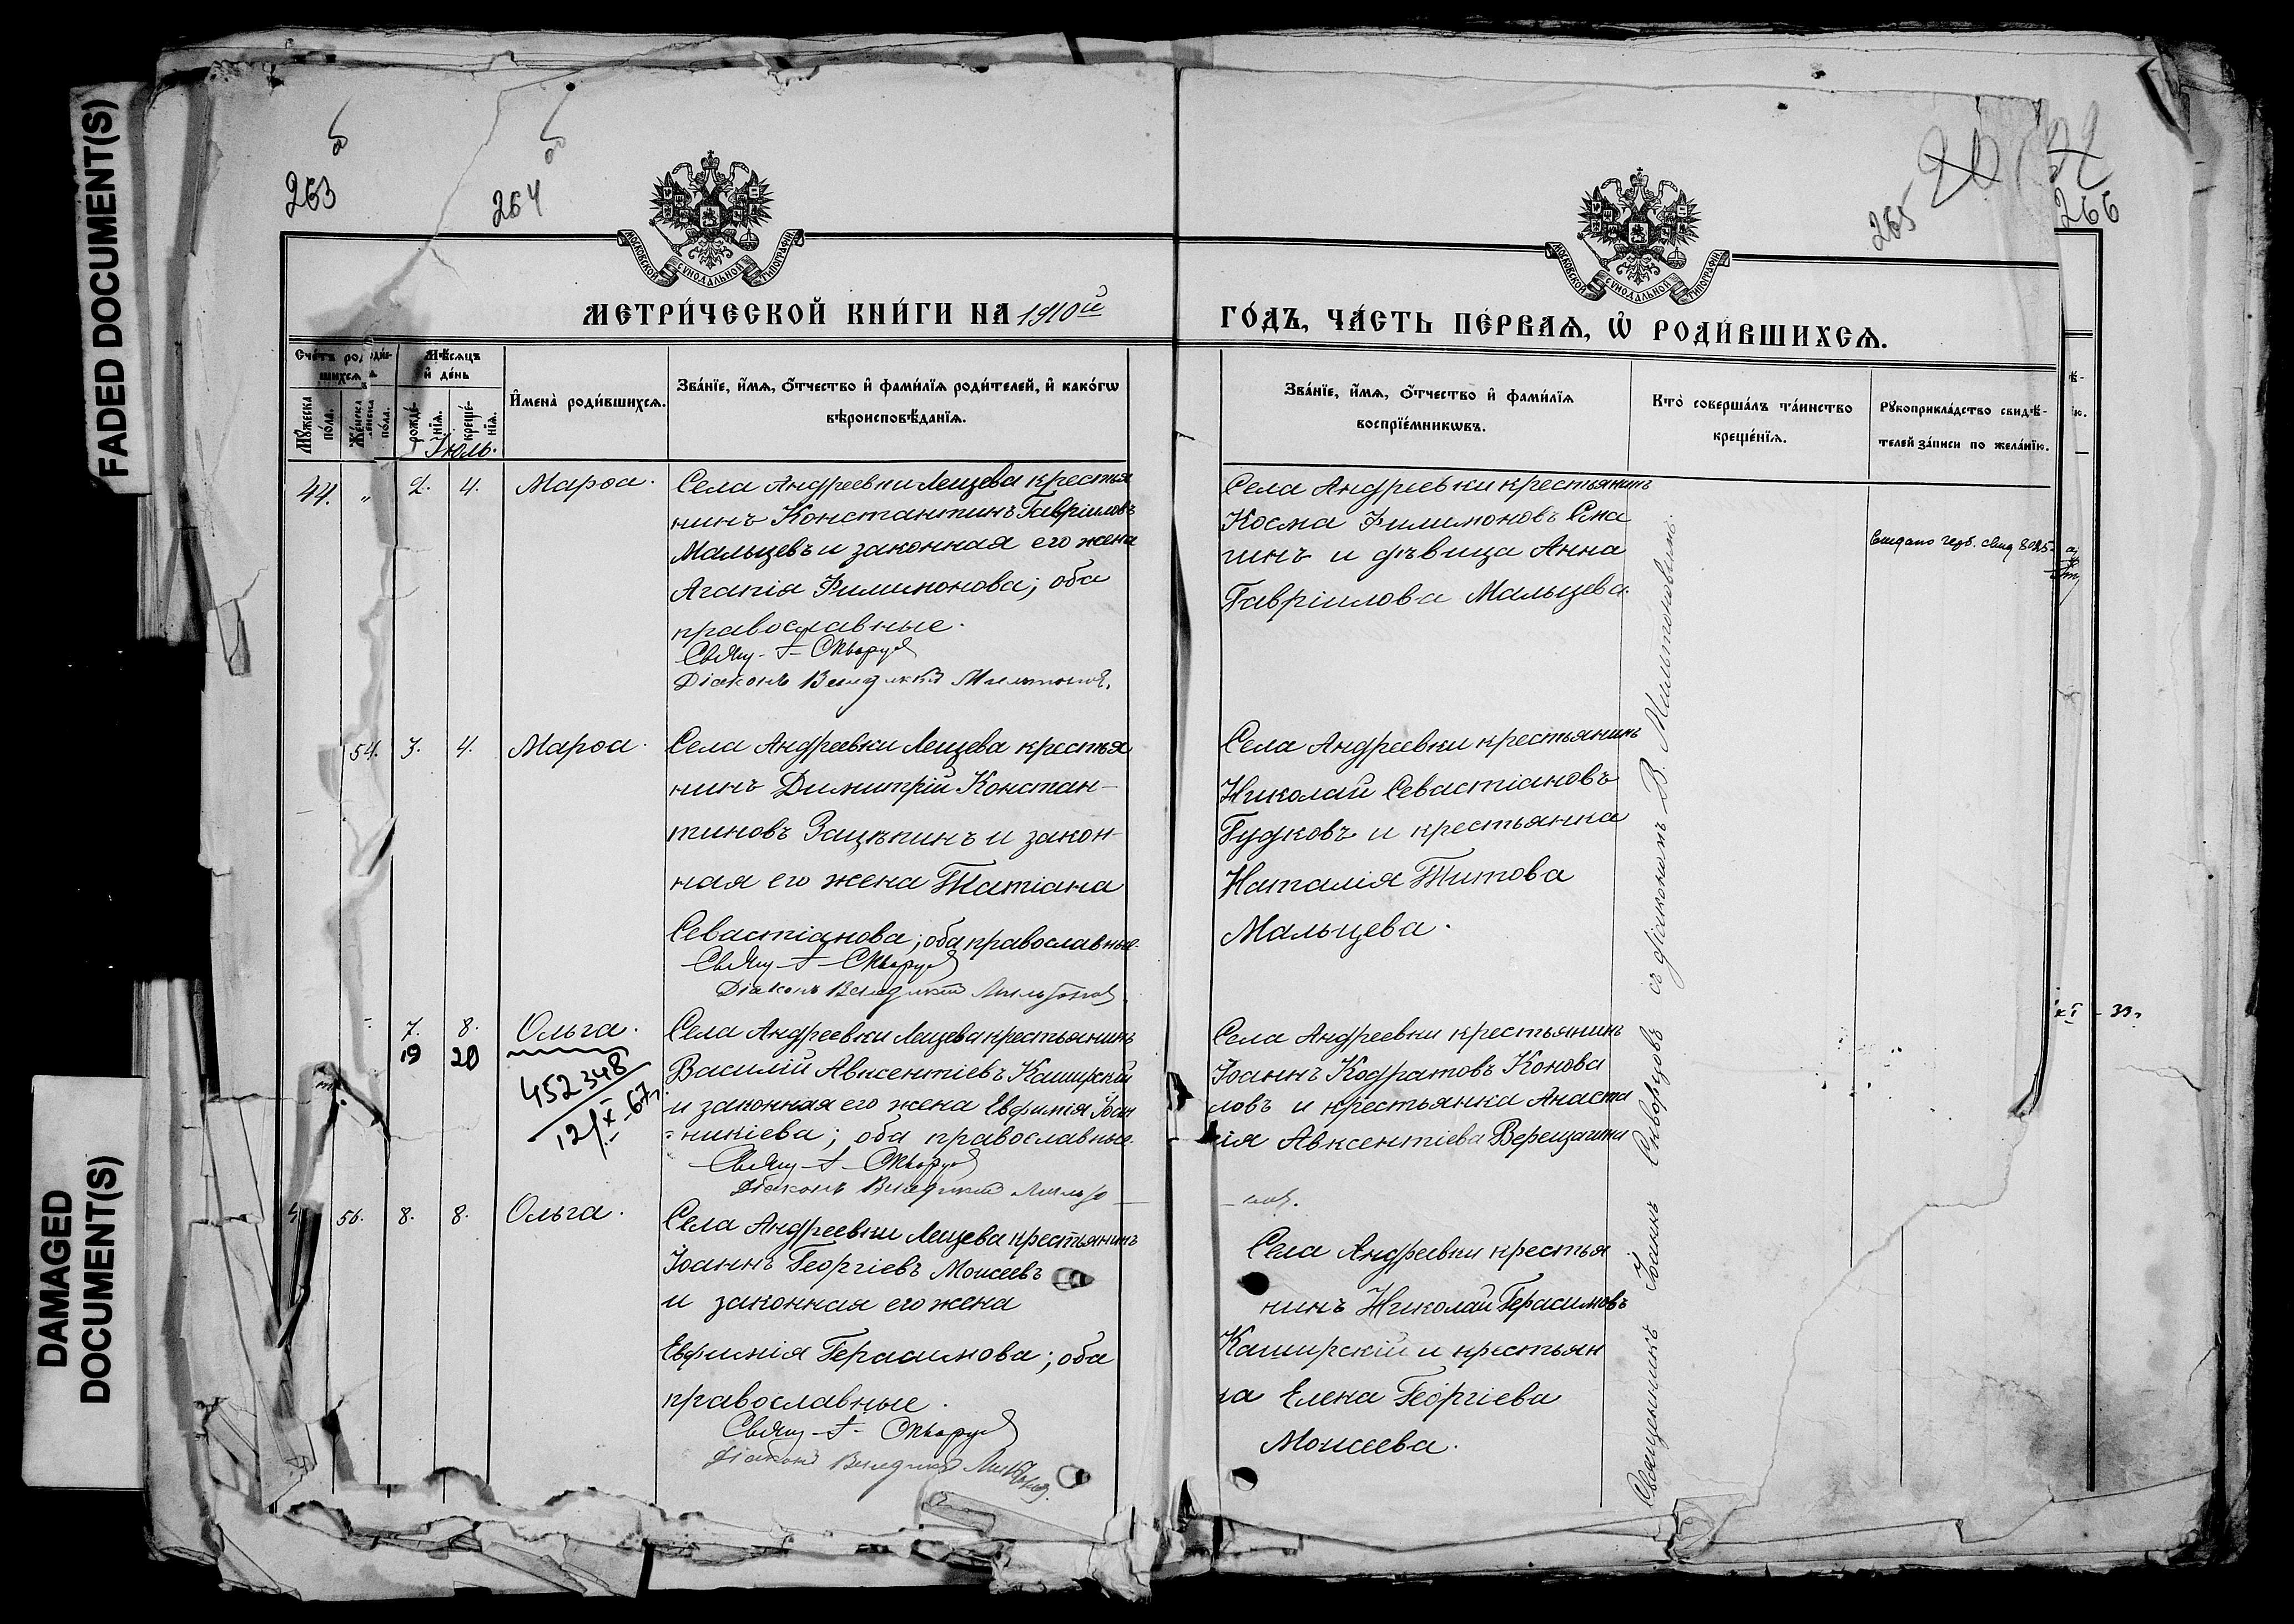 FADED DOCUMENT(S)
DAMAGED
DOCUMENT(S)
263
264
265
266
МОСКОВСКОЙ СѴНОДАЛЬНОЙ ТИПОГРАФІИ
МОСКОВСКОЙ СѴНОДАЛЬНОЙ ТИПОГРАФІИ
МЕТРИ́ЧЕСКОЙ КНИ́ГИ НА 1910й
ГО́ДЪ, ЧА́СТЬ ПЕ́РВАѦ, Ѡ҆ РОДИ́ВШИХСѦ.
Сче́тъ роди́в-
шихсѧ
Мѣ́сяцъ
и҆ де́нь
Мꙋ́жеска
по́ла.
Же́нска
по́ла.
рожде́-
нїѧ.
креще́-
нїѧ.
И҆мена̀ роди́вшихсѧ.
Зва́нїе, и҆́мѧ, ѻ҆́тчество и҆ фами́лїѧ роди́телей, и҆ како́гѡ
вѣроисповѣ́данїѧ.
Зва́нїе, и҆́мѧ, ѻ҆́тчество и҆ фами́лїѧ
воспрїе́мникѡвъ.
Кто̀ соверша́лъ та́инство
креще́нїѧ.
Рꙋкоприкла́дство свидѣ́-
телей за́писи по жела́нїю.
Іюль.
44. „ 2. 4. Марѳа.
Села Андреевки Лещева крестья
нинъ Константинъ Гавріиловъ
Мальцевъ и законная его жена
Агапія Филимонова; оба
православные.
Свящ. І. Скворцовъ
Діаконъ Венедиктъ Мильтоновъ.
Села Андреевки крестьянинъ
Косма Филимоновъ Сма
гинъ и дѣвица Анна
Гавріилова Мальцева.
54. 3. 4. Марѳа.
Села Андреевки Лещева крестья
нинъ Димитрій Констан-
тиновъ Зацѣпинъ и закон
ная его жена Татіана
Севастіанова; оба православные.
Свящ. І. Скворцовъ
Діаконъ Венедиктъ Мильтоновъ
Села Андреевки крестьянинъ
Николай Севастіановъ
Гудковъ и крестьянка
Наталія Титова
Мальцева.
7. 8. Ольга.
19 20
452348
12/X-67г.
Села Андреевки Лещева крестьянинъ
Василій Авксентіевъ Каширскій
и законная его жена Евфимія Іоан
=никіева; оба православные.
Свящ. І. Скворцовъ
Діаконъ Венедиктъ Мильто-
-новъ.
Села Андреевки крестьянинъ
Іоаннъ Кодратовъ Конова
ловъ и крестьянка Анаста
сія Авксентіева Верещагина
56. 8. 8. Ольга.
Села Андреевки Лещева крестьянинъ
Іоаннъ Георгіевъ Моисеевъ
и законная его жена
Евфимія Герасимова; оба
православные.
Свящ. І. Скворцовъ
Діаконъ Венедиктъ Мильтоновъ.
Села Андреевки крестья
нинъ Николай Герасимовъ
Каширскій и крестьян
ка Елена Георгіева
Моисеева.
Священникъ Іоаннъ Скворцовъ съ діакономъ В. Мильтоновымъ.